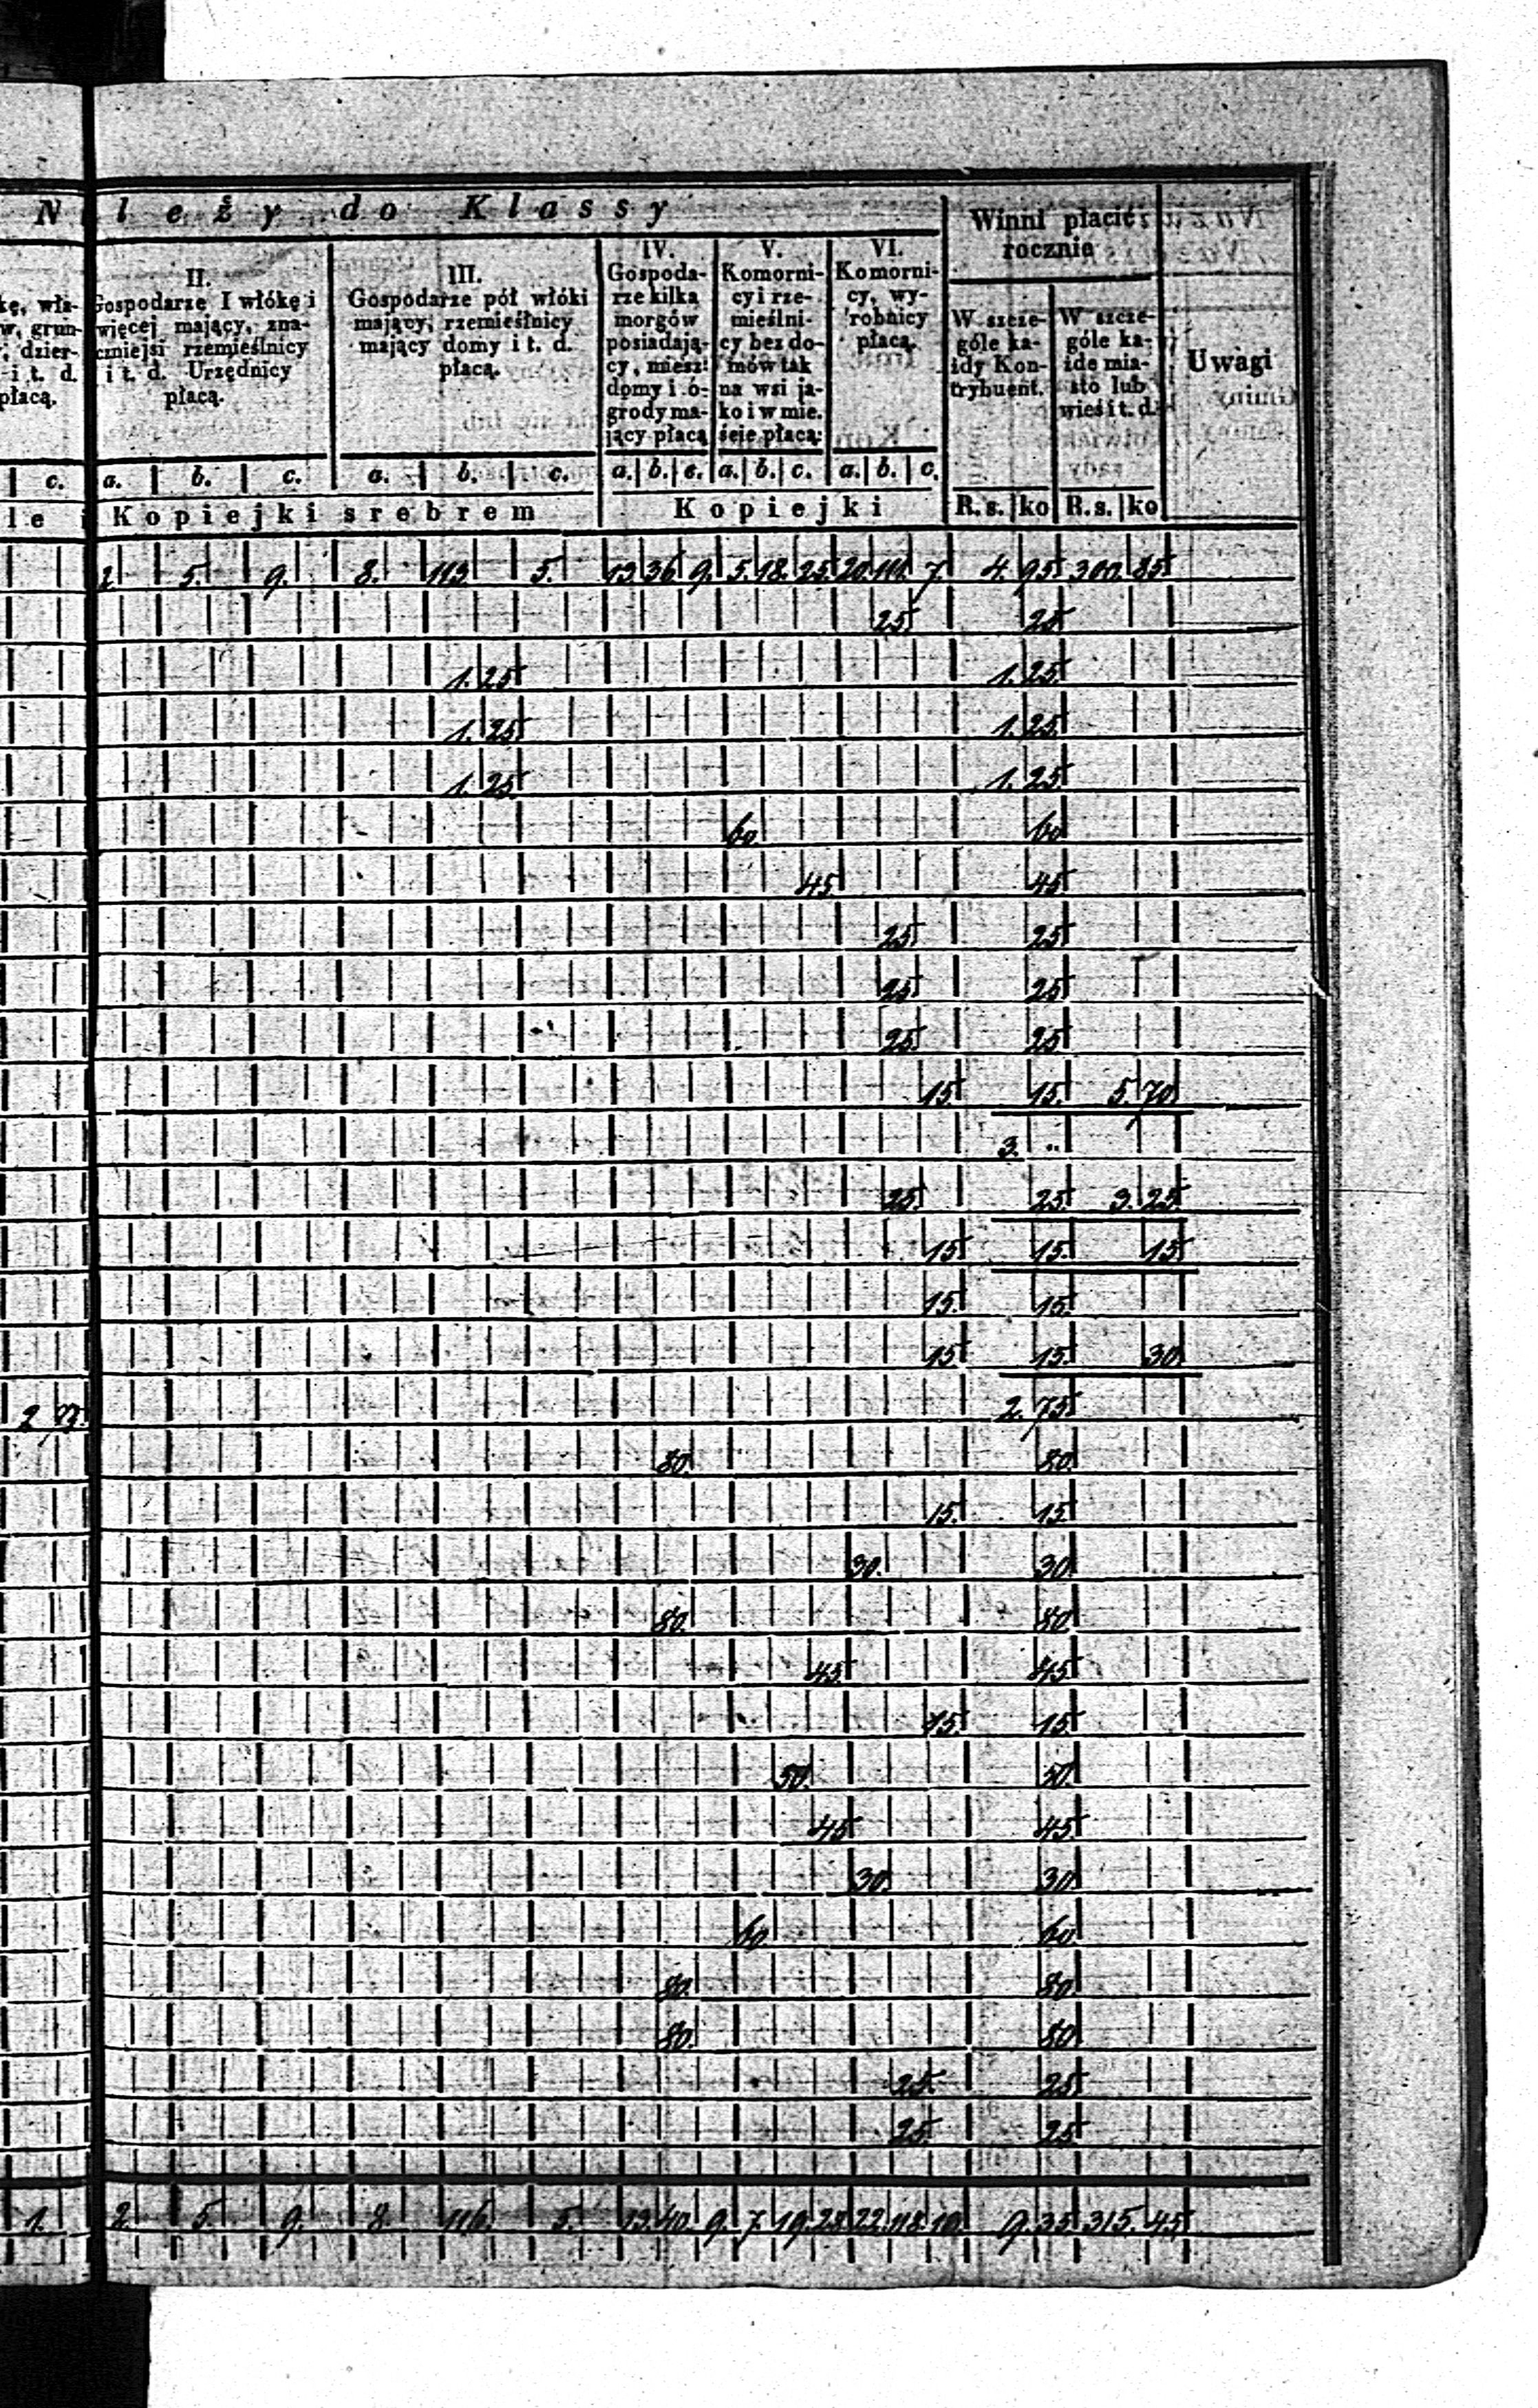 N leży do Klassy
Winni płacić rocznie
kę, wła-
w, grun-
, dzier-
i t. d.
płacą.
II.
Gospodarze I włókę i
więcej mający, zna-
czniejsi rzemieślnicy
i t. d. Urzędnicy
płacą.
III.
Gospodarze pół włóki
mający, rzemieślnicy
mający domy i t. d.
płacą.
IV.
Gospoda-
rze kilka
morgów
posiadają-
cy, miesz:
domy i o-
grody ma-
jący płacą
V.
Komorni-
cy i rze-
mieślni-
cy bez do-
mów tak
na wsi ja-
ko i w mie.
ście płacą:
VI.
Komorni-
cy, wy-
robnicy
płacą.
W szcze-
góle ka-
żdy Kon-
trybuent.
W szcze-
góle ka-
żde mia-
sto lub
wieś i t. d.
Uwagi
c. a. b. c. a. b. c. a. b. c. a. b. c. a. b. c.
le Kopiejki srebrem Kopiejki R.s. ko R.s. ko
2. 5. 9. 8. 113 5. 13 36 9. 5. 18. 25. 20. 111. 7 4. 95 300. 85
25 25
1. 25 1. 25
1. 25 1. 25
1. 25 1. 25
60. 60
45 45
25 25
25 25
25 25
15 15. 5 70
3. ..
25. 25 3. 25
15 15. 15
15. 15.
15 15. 30
2 75 2. 75
80. 80.
15. 15
30. 30
80. 80
45 45
15 15
50. 50.
45 45
30. 30
60 60
80. 80
80. 80
25. 25
25. 25
1. 2. 5. 9. 8. 116. 5. 13. 40. 9. 7. 19. 28. 22. 118. 10. 9. 35 315. 45